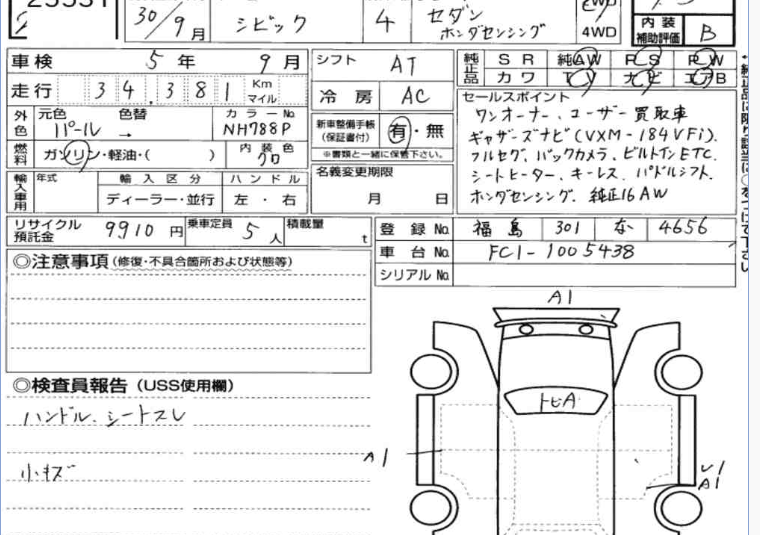 30/9月
シビック
4
セダン
ホンダセンシング
4WD
内装
補助評価
B
車検 5年 9月
シフト AT
純正品 SR 純AW PS PW
カワ TV ナビ エアB
走行 34,381 Km マイル
冷房 AC
セールスポイント
ワンオーナー、ユーザー買取車
ギャザーズナビ(VXM-184VFi)、
フルセグ、バックカメラ、ビルトインETC、
シートヒーター、キーレス、パドルシフト、
ホンダセンシング、純正16AW
外色 元色 色替 カラーNo.
パール → NH788P
新車整備手帳
(保証書付)
有・無
※書類と一緒に保管下さい。
燃料 ガソリン・軽油・( ) 内装色 クロ
名義変更期限
月 日
輸入車用 年式 輸入区分 ハンドル
ディーラー・並行 左・右
リサイクル
預託金
9910円
乗車定員 5人
積載量 t
登録No. 福島 301 な 4656
車台No. FC1-1005438
シリアルNo.
◎注意事項(修復・不具合箇所および状態等)
A1
◎検査員報告(USS使用欄)
トビA
ハンドル、シートスレ
A1
小キズ
A1